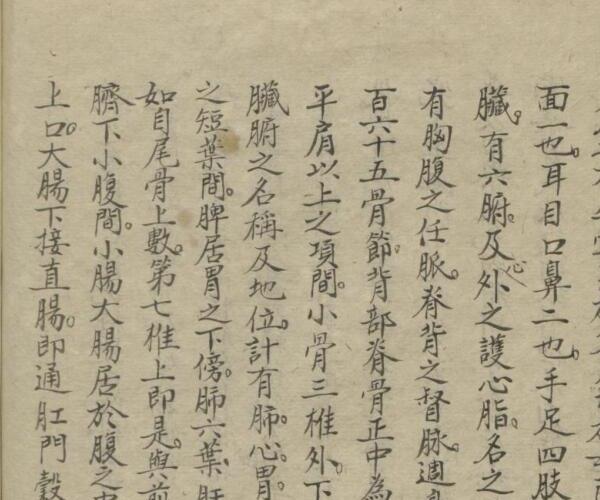 面一也。耳目口鼻二也。手足四肢
臟。有六腑。及外心之護心脂。名之
有胸腹之任脈。脊背之督脉。週
百六十五骨節。背部脊骨正中為
平肩以上之項間。小骨三椎外。下
臟腑之名稱及地位。計有肺。心。胃。
之短葉間。脾居胃之下傍。肺六葉。肝
如自尾骨上數。第七椎上即是。與前
臍下小腹間。小腸大腸居於腹之中
上口。大腸下接直腸。即通肛門。穀